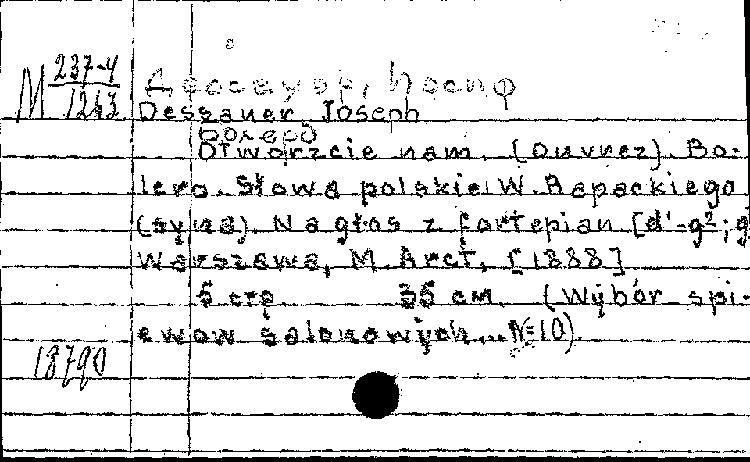 M 237-4
1263
Дессауэр, Йосиф
Dessauer, Joseph
Болеро
Otwórzcie nam. (Ouvrez). Bo-
lero. Słowa polskie W. Rapackiego
(syna). Na głos z fortepian [d'-g²; g
Warszawa, M. Arct, [1888]
5 стр. 35 см. (Wybór śpi-
ewow salonowych... №10).
18790